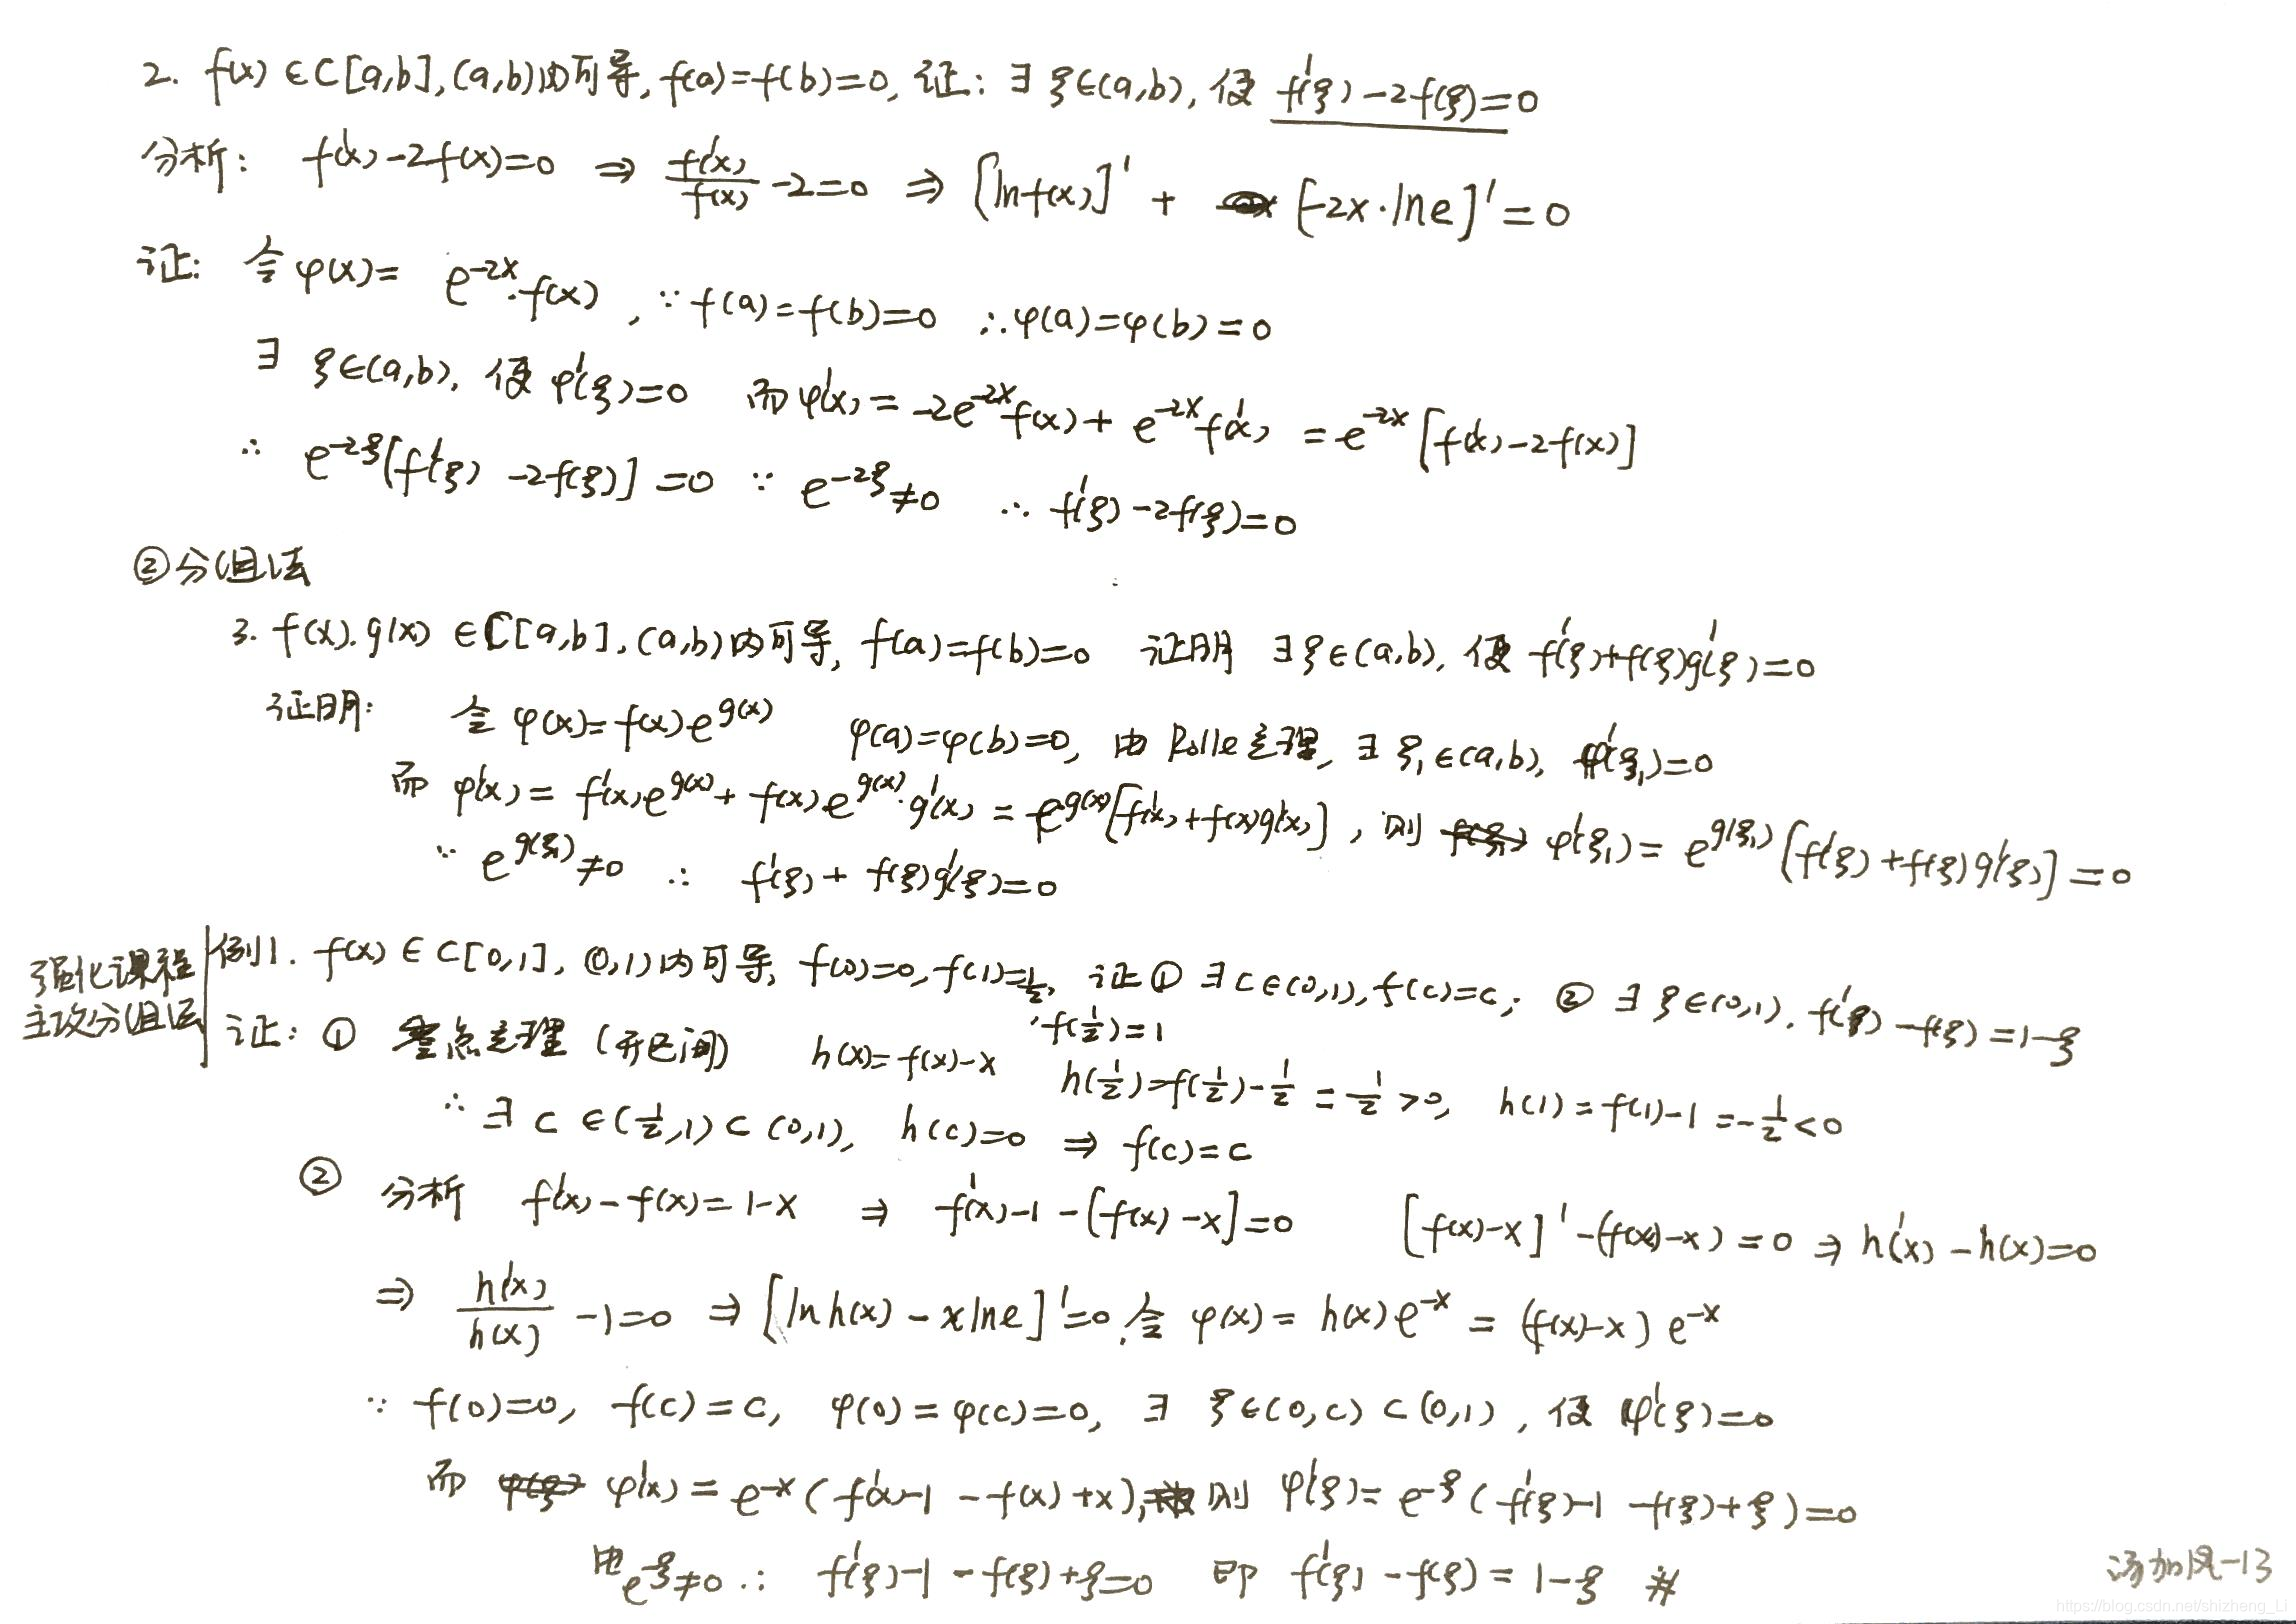 2. f(x)∈C[a,b],(a,b)内可导,f(a)=f(b)=0,证:∃ξ∈(a,b),使f'(ξ)-2f(ξ)=0
分析: f'(x)-2f(x)=0 ⇒ f'(x)/f(x) -2=0 ⇒ [lnf(x)]' + [-2x·lne]'=0
证: 令φ(x)= e^{-2x}·f(x), ∵f(a)=f(b)=0 ∴φ(a)=φ(b)=0
∃ ξ∈(a,b), 使φ'(ξ)=0 而φ'(x)=-2e^{-2x}f(x)+e^{-2x}f'(x) =e^{-2x}[f'(x)-2f(x)]
∴ e^{-2ξ}[f'(ξ)-2f(ξ)]=0 ∵ e^{-2ξ}≠0 ∴ f'(ξ)-2f(ξ)=0
②分组法
3. f(x).g(x)∈C[a,b],(a,b)内可导,f(a)=f(b)=0 证明 ∃ξ∈(a,b),使f'(ξ)+f(ξ)g'(ξ)=0
证明: 令φ(x)=f(x)e^{g(x)} φ(a)=φ(b)=0, 由Rolle定理, ∃ξ₁∈(a,b), φ'(ξ₁)=0
而 φ'(x)= f'(x)e^{g(x)}+f(x)e^{g(x)}·g'(x) = e^{g(x)}[f'(x)+f(x)g'(x)], 则 φ'(ξ₁)= e^{g(ξ₁)}[f'(ξ)+f(ξ)g'(ξ)]=0
∵ e^{g(ξ₁)}≠0 ∴ f'(ξ)+f(ξ)g'(ξ)=0
强化课程
主攻分组法
例1. f(x)∈C[0,1],(0,1)内可导,f(0)=0,f(1)=1/2, f(1/2)=1 证① ∃c∈(0,1),f(c)=c; ② ∃ξ∈(0,1).f'(ξ)-f(ξ)=1-ξ
证: ① 零点定理(开区间) h(x)=f(x)-x h(1/2)=f(1/2)-1/2=1/2>0, h(1)=f(1)-1=-1/2<0
∴ ∃c∈(1/2,1)⊂(0,1), h(c)=0 ⇒ f(c)=c
② 分析 f'(x)-f(x)=1-x ⇒ f'(x)-1-[f(x)-x]=0 [f(x)-x]'-(f(x)-x)=0 ⇒ h'(x)-h(x)=0
⇒ h'(x)/h(x) -1=0 ⇒ [lnh(x)-xlne]'=0,令φ(x)=h(x)e^{-x}=(f(x)-x)e^{-x}
∵ f(0)=0, f(c)=c, φ(0)=φ(c)=0, ∃ ξ∈(0,c)⊂(0,1),使φ'(ξ)=0
而 φ'(x)=e^{-x}(f'(x)-1-f(x)+x), 则φ'(ξ)=e^{-ξ}(f'(ξ)-1-f(ξ)+ξ)=0
由e^{-ξ}≠0 ∴ f'(ξ)-1-f(ξ)+ξ=0 即 f'(ξ)-f(ξ)=1-ξ #
汤加凤-13
https://blog.csdn.net/shizheng_Li